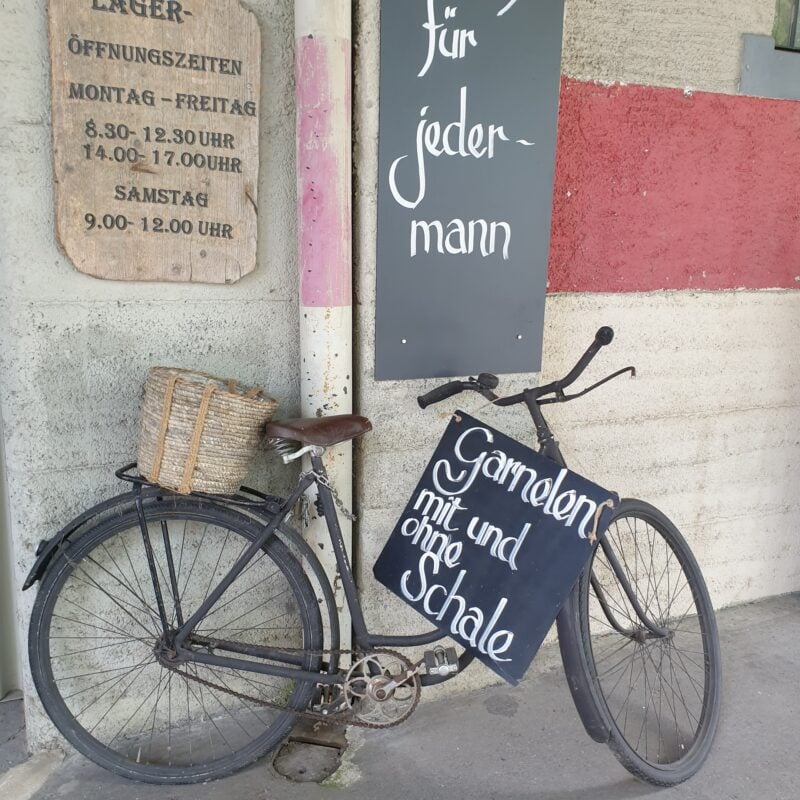 LAGER-
ÖFFNUNGSZEITEN
MONTAG – FREITAG
8.30- 12.30 UHR
14.00- 17.00 UHR
SAMSTAG
9.00- 12.00 UHR
für
jeder-
mann
Garnelen
mit und
ohne
Schale